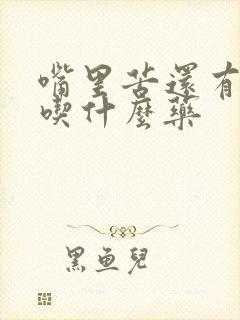 嘴里苦還有
喫什麼藥
黑魚兒